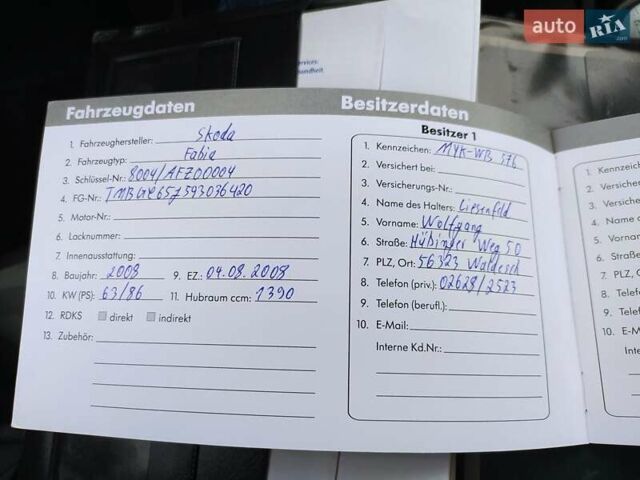 auto RIA.com
services:
Fahrzeugdaten
1. Fahrzeughersteller: Skoda
2. Fahrzeugtyp: Fabia
3. Schlüssel-Nr.: 8004/AFZ00004
4. FG-Nr.:
5. Motor-Nr.:
6. Lacknummer:
7. Innenausstattung:
8. Baujahr: 2008 9. EZ.: 04.08.2008
10. KW (PS): 63/86 11. Hubraum ccm: 1390
12. RDKS direkt indirekt
13. Zubehör:
Besitzerdaten
Besitzer 1
1. Kennzeichen: MYK-WB 576
2. Versichert bei:
3. Versicherungs-Nr.:
4. Name des Halters: Liesenfeld
5. Vorname: Wolfgang
6. Straße: Hübinger Weg 50
7. PLZ, Ort: 56323 Waldesch
8. Telefon (priv.): 02628/2523
9. Telefon (berufl.):
10. E-Mail:
Interne Kd.Nr.:
1. Kennzeichen
2. Versichert
3. Versicher
4. Name d
5. Vorname
6. Straße:
7. PLZ, O
8. Telefo
9. Telefo
10. E-M
Inter